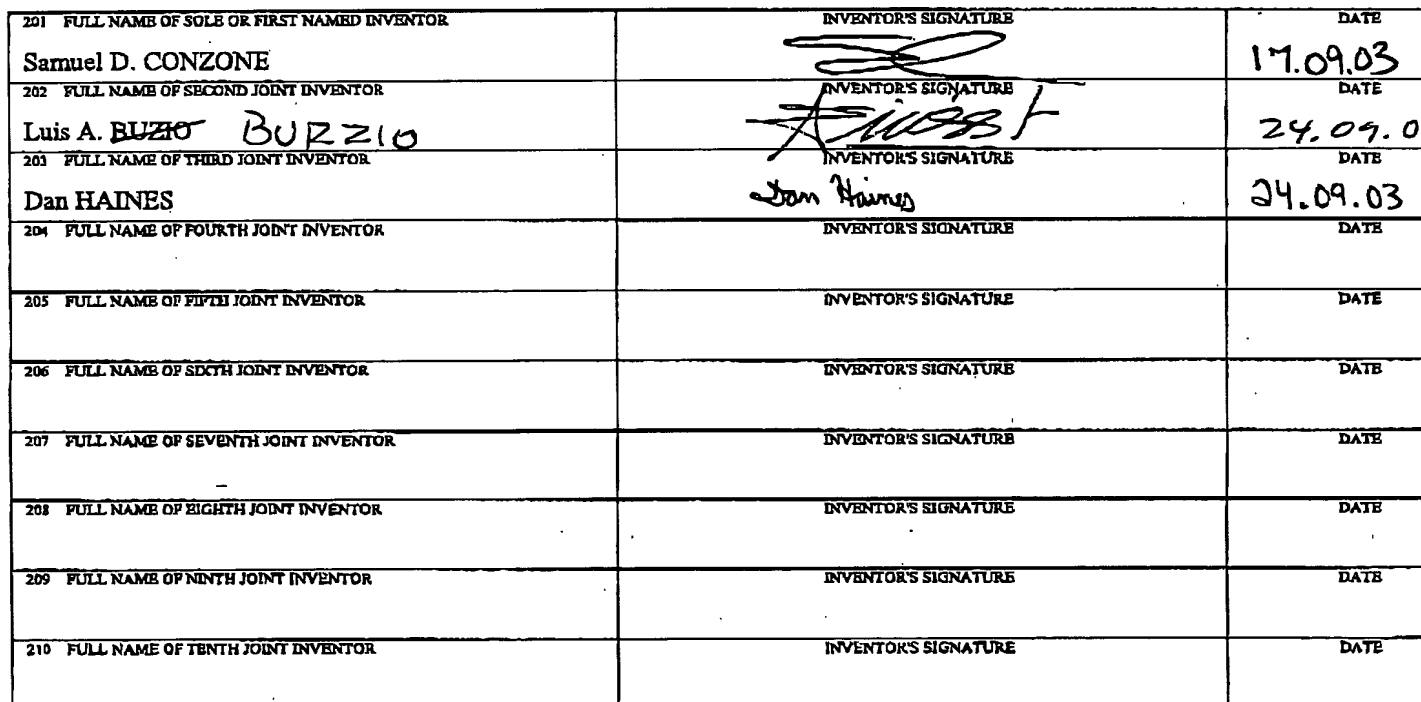 201 FULL NAME OF SOLE OR FIRST NAMED INVENTOR INVENTOR'S SIGNATURE DATE
Samuel D. CONZONE 17.09.03
202 FULL NAME OF SECOND JOINT INVENTOR INVENTOR'S SIGNATURE DATE
Luis A. BUZIO BURZZIO 24.09.0
203 FULL NAME OF THIRD JOINT INVENTOR INVENTOR'S SIGNATURE DATE
Dan HAINES Dan Haines 24.09.03
204 FULL NAME OF FOURTH JOINT INVENTOR INVENTOR'S SIGNATURE DATE
205 FULL NAME OF FIFTH JOINT INVENTOR INVENTOR'S SIGNATURE DATE
206 FULL NAME OF SIXTH JOINT INVENTOR INVENTOR'S SIGNATURE DATE
207 FULL NAME OF SEVENTH JOINT INVENTOR INVENTOR'S SIGNATURE DATE
208 FULL NAME OF EIGHTH JOINT INVENTOR INVENTOR'S SIGNATURE DATE
209 FULL NAME OF NINTH JOINT INVENTOR INVENTOR'S SIGNATURE DATE
210 FULL NAME OF TENTH JOINT INVENTOR INVENTOR'S SIGNATURE DATE